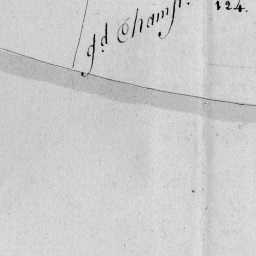 gd. Champ.
124.